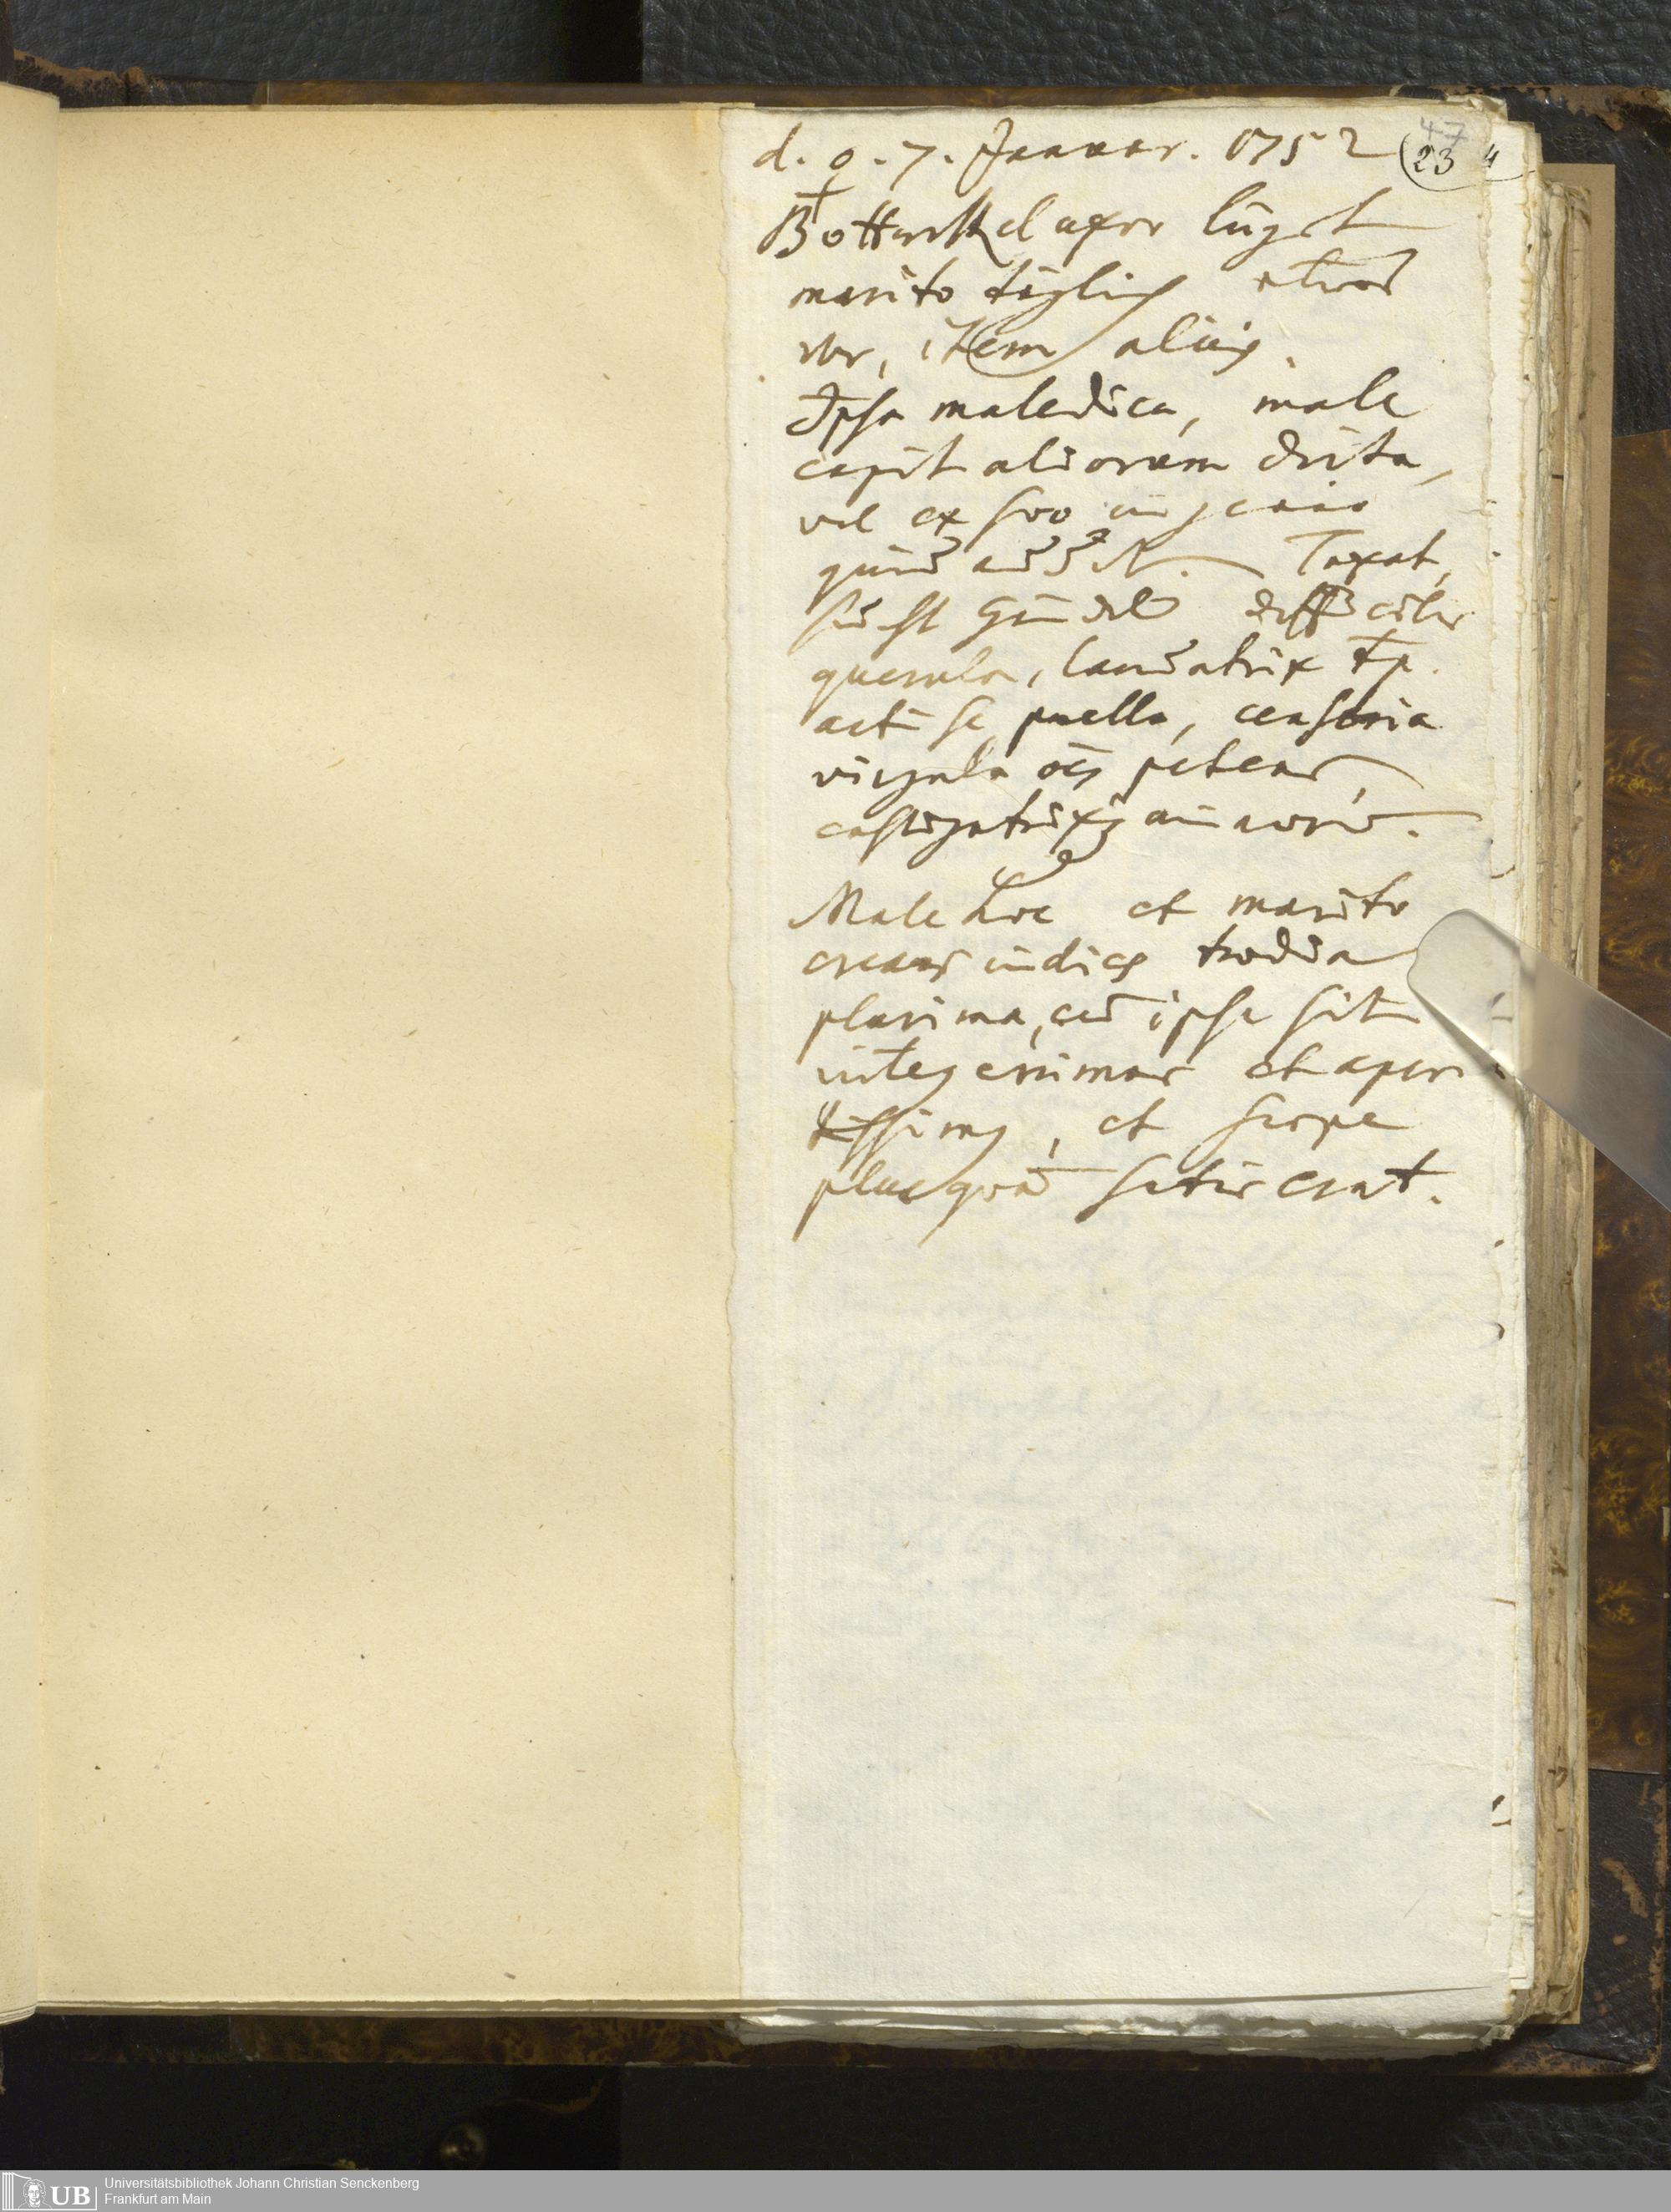 d. 9. 7. Januar. 1752
47
23 4
uxor lügt
marito täglich etwas
vor, item aliis.
Ipsa maledica, male
capit aliorum dicta,
vel ex suo ingenio
quid addit. Taxat,
sucht Händel difficilis
querula, laudatrix tp.
acti se puella, censoria
virgula oēs petens,
castigatrixq minorū.
Male hoc et marito
creans indies taedia
plurima, cū ipse sit
integerrimus et aper
tissimus, et saepe
plus quā satis erat.
UB
Universitätsbibliothek Johann Christian Senckenberg
Frankfurt am Main